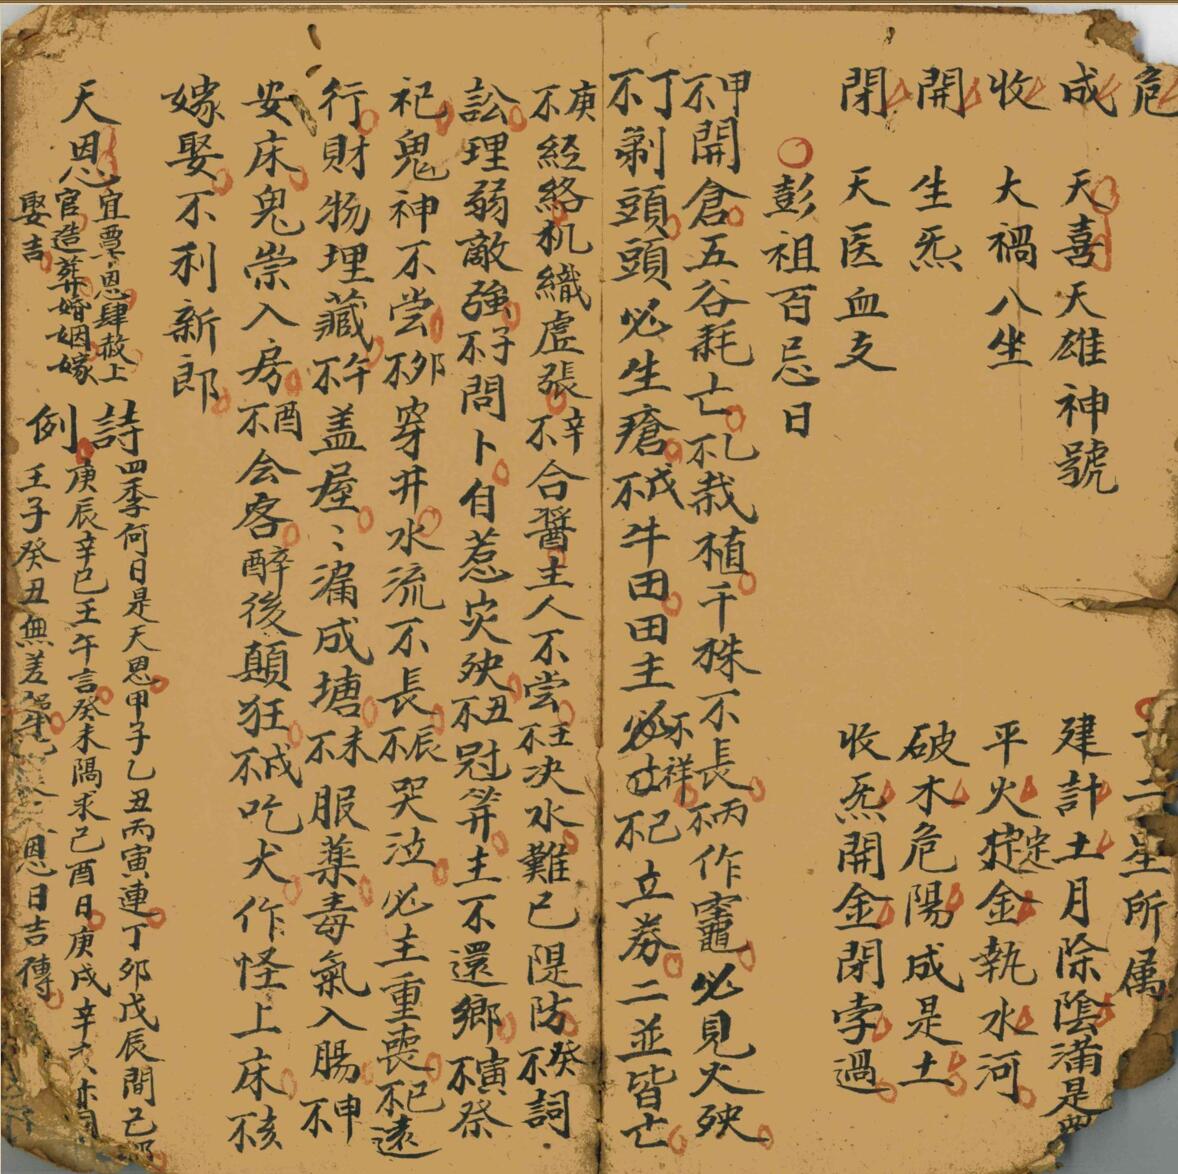 危
成 天喜天雄神號
收 大禍八坐
開 生炁
閉 天医血支
二星所属
建計土月除陰滿是
平火㝎定金執水河
破木危陽成是土
收炁開金閉孛過
彭祖百忌日
甲不開倉五谷耗亡乙不栽植千株不長丙不作竈必見火殃
丁不剃頭頭必生瘡戊不牛田田主必不祥己不立券二並皆亡
庚不經絡机織虛張辛不合醬主人不尝壬不决水難已隄防癸不詞
訟理弱敵強子不問卜自惹灾殃丑不冠笄主不還鄉寅不祭
祀鬼神不尝卯不穿井水流不長辰不哭泣必主重喪巳不遠
行財物埋藏午不盖屋〻漏成塘未不服藥毒氣入腸申不
安床鬼崇入房酉不会客醉後顛狂戌不吃犬作怪上床亥不
嫁娶不利新郎
天恩
宜覃恩肆赦上
官造葬婚姻嫁
娶吉
詩例
四季何日是天恩甲子乙丑丙寅連丁卯戊辰間己卯
庚辰辛巳壬午言癸未隔求己酉日庚戌辛亥
壬子癸丑無差 恩日吉傳